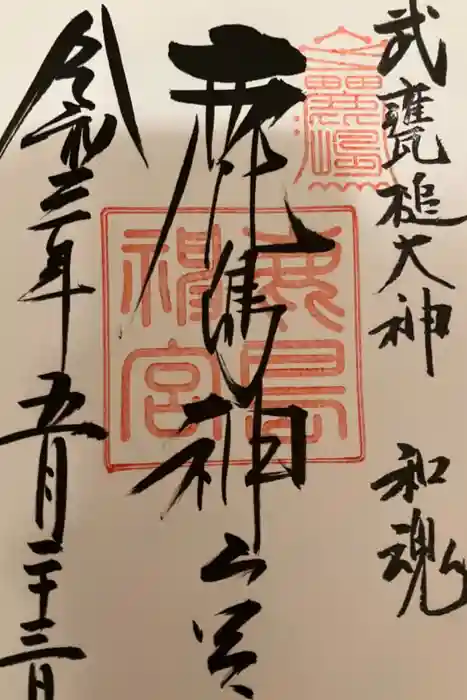 武甕槌大神 和魂
鹿島神宮
鹿島神宮
令和三年五月二十三日